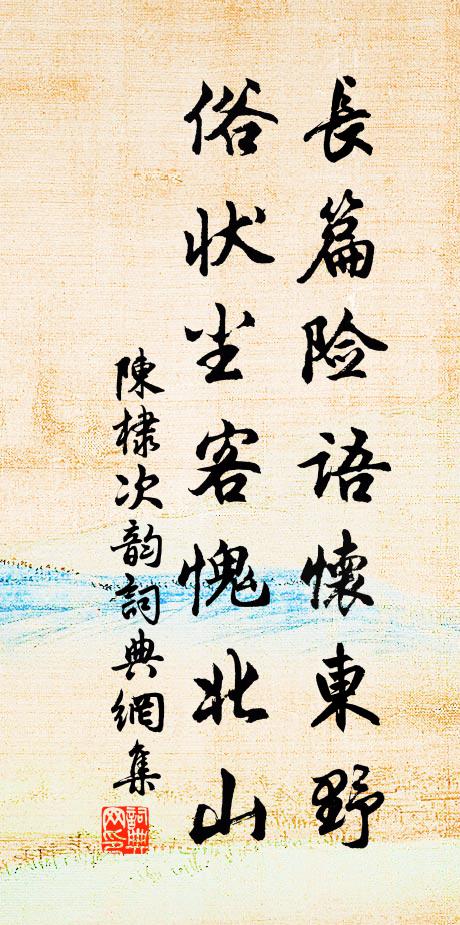 長篇险語懷東野
俗状尘客愧北山
陳棣次韵詞典網集
詞典网印